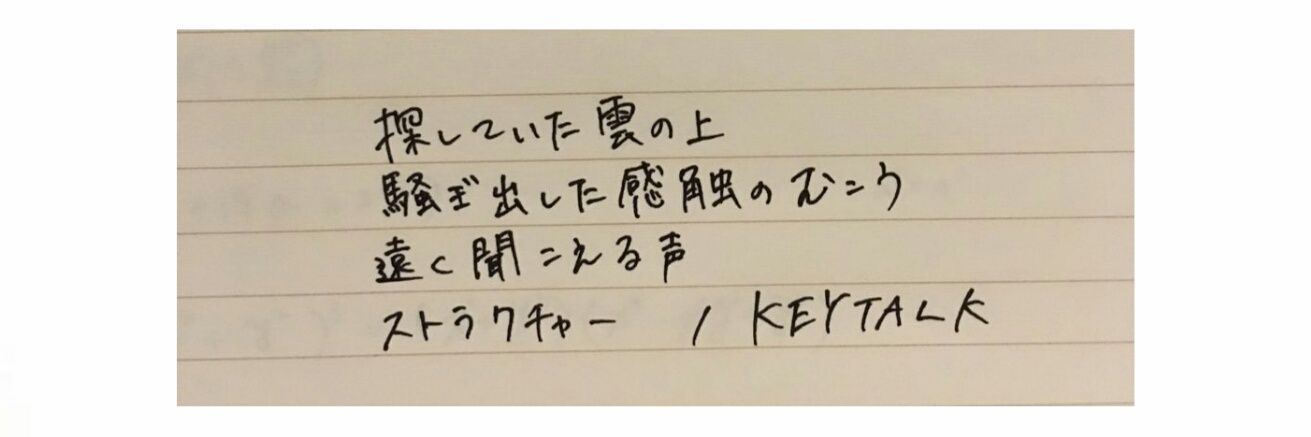 探していた雲の上
騒ぎ出した感触のむこう
遠く聞こえる声
ストラクチャー / KEYTALK